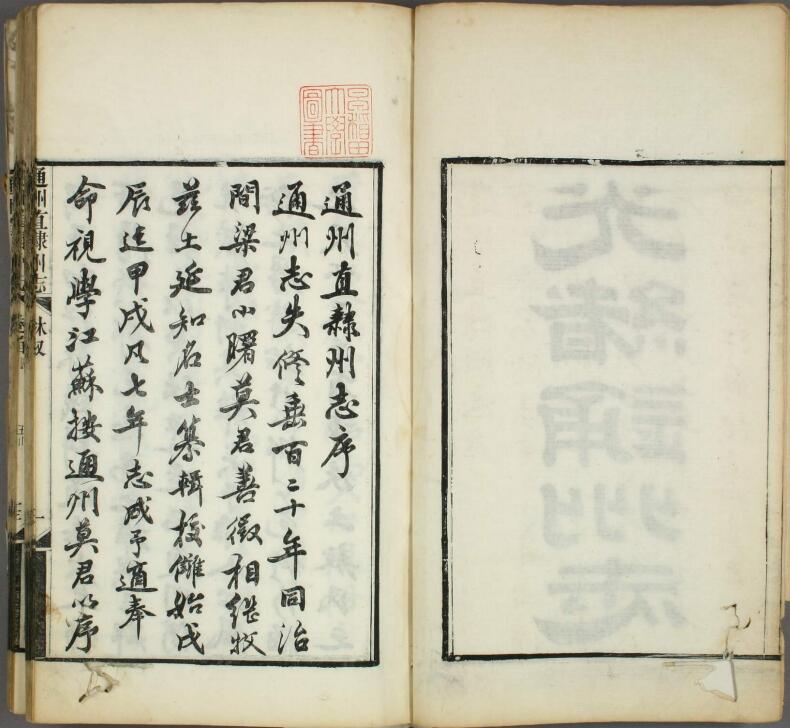 早稻田
大學
圖書
通州直隸州志序
通州志失修垂百二十年同治
間梁君小曙莫君善徵相繼牧
茲土延知名士纂輯校讎始戊
辰迄甲戌凡七年志成予適奉
命視學江蘇按通州莫君以序
通州直隸州志 林叙 一